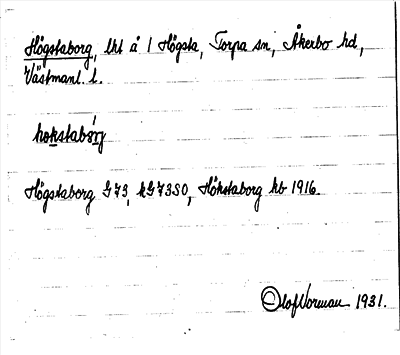 Högstaborg, lht å 1 Högsta, Torpa sn, Åkerbo hd,
Västmanl. l.
hokstabórj
Högstaborg G73, kG73SO, Hökstaborg kb 1916.
Olof Norman 1931.